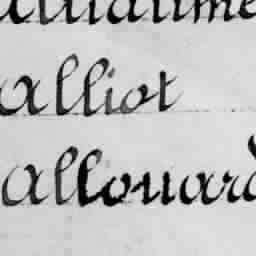 Alliot
Allouard